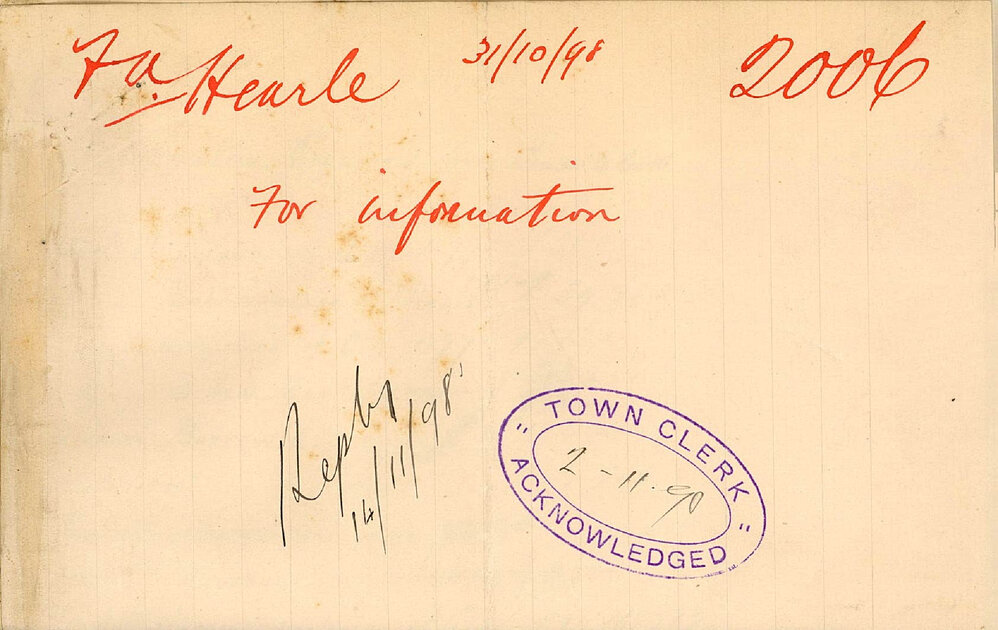 Fa. Hearle 31/10/98 2006
For information
Reply
14/11/98
" TOWN CLERK "
2-11-98
ACKNOWLEDGED